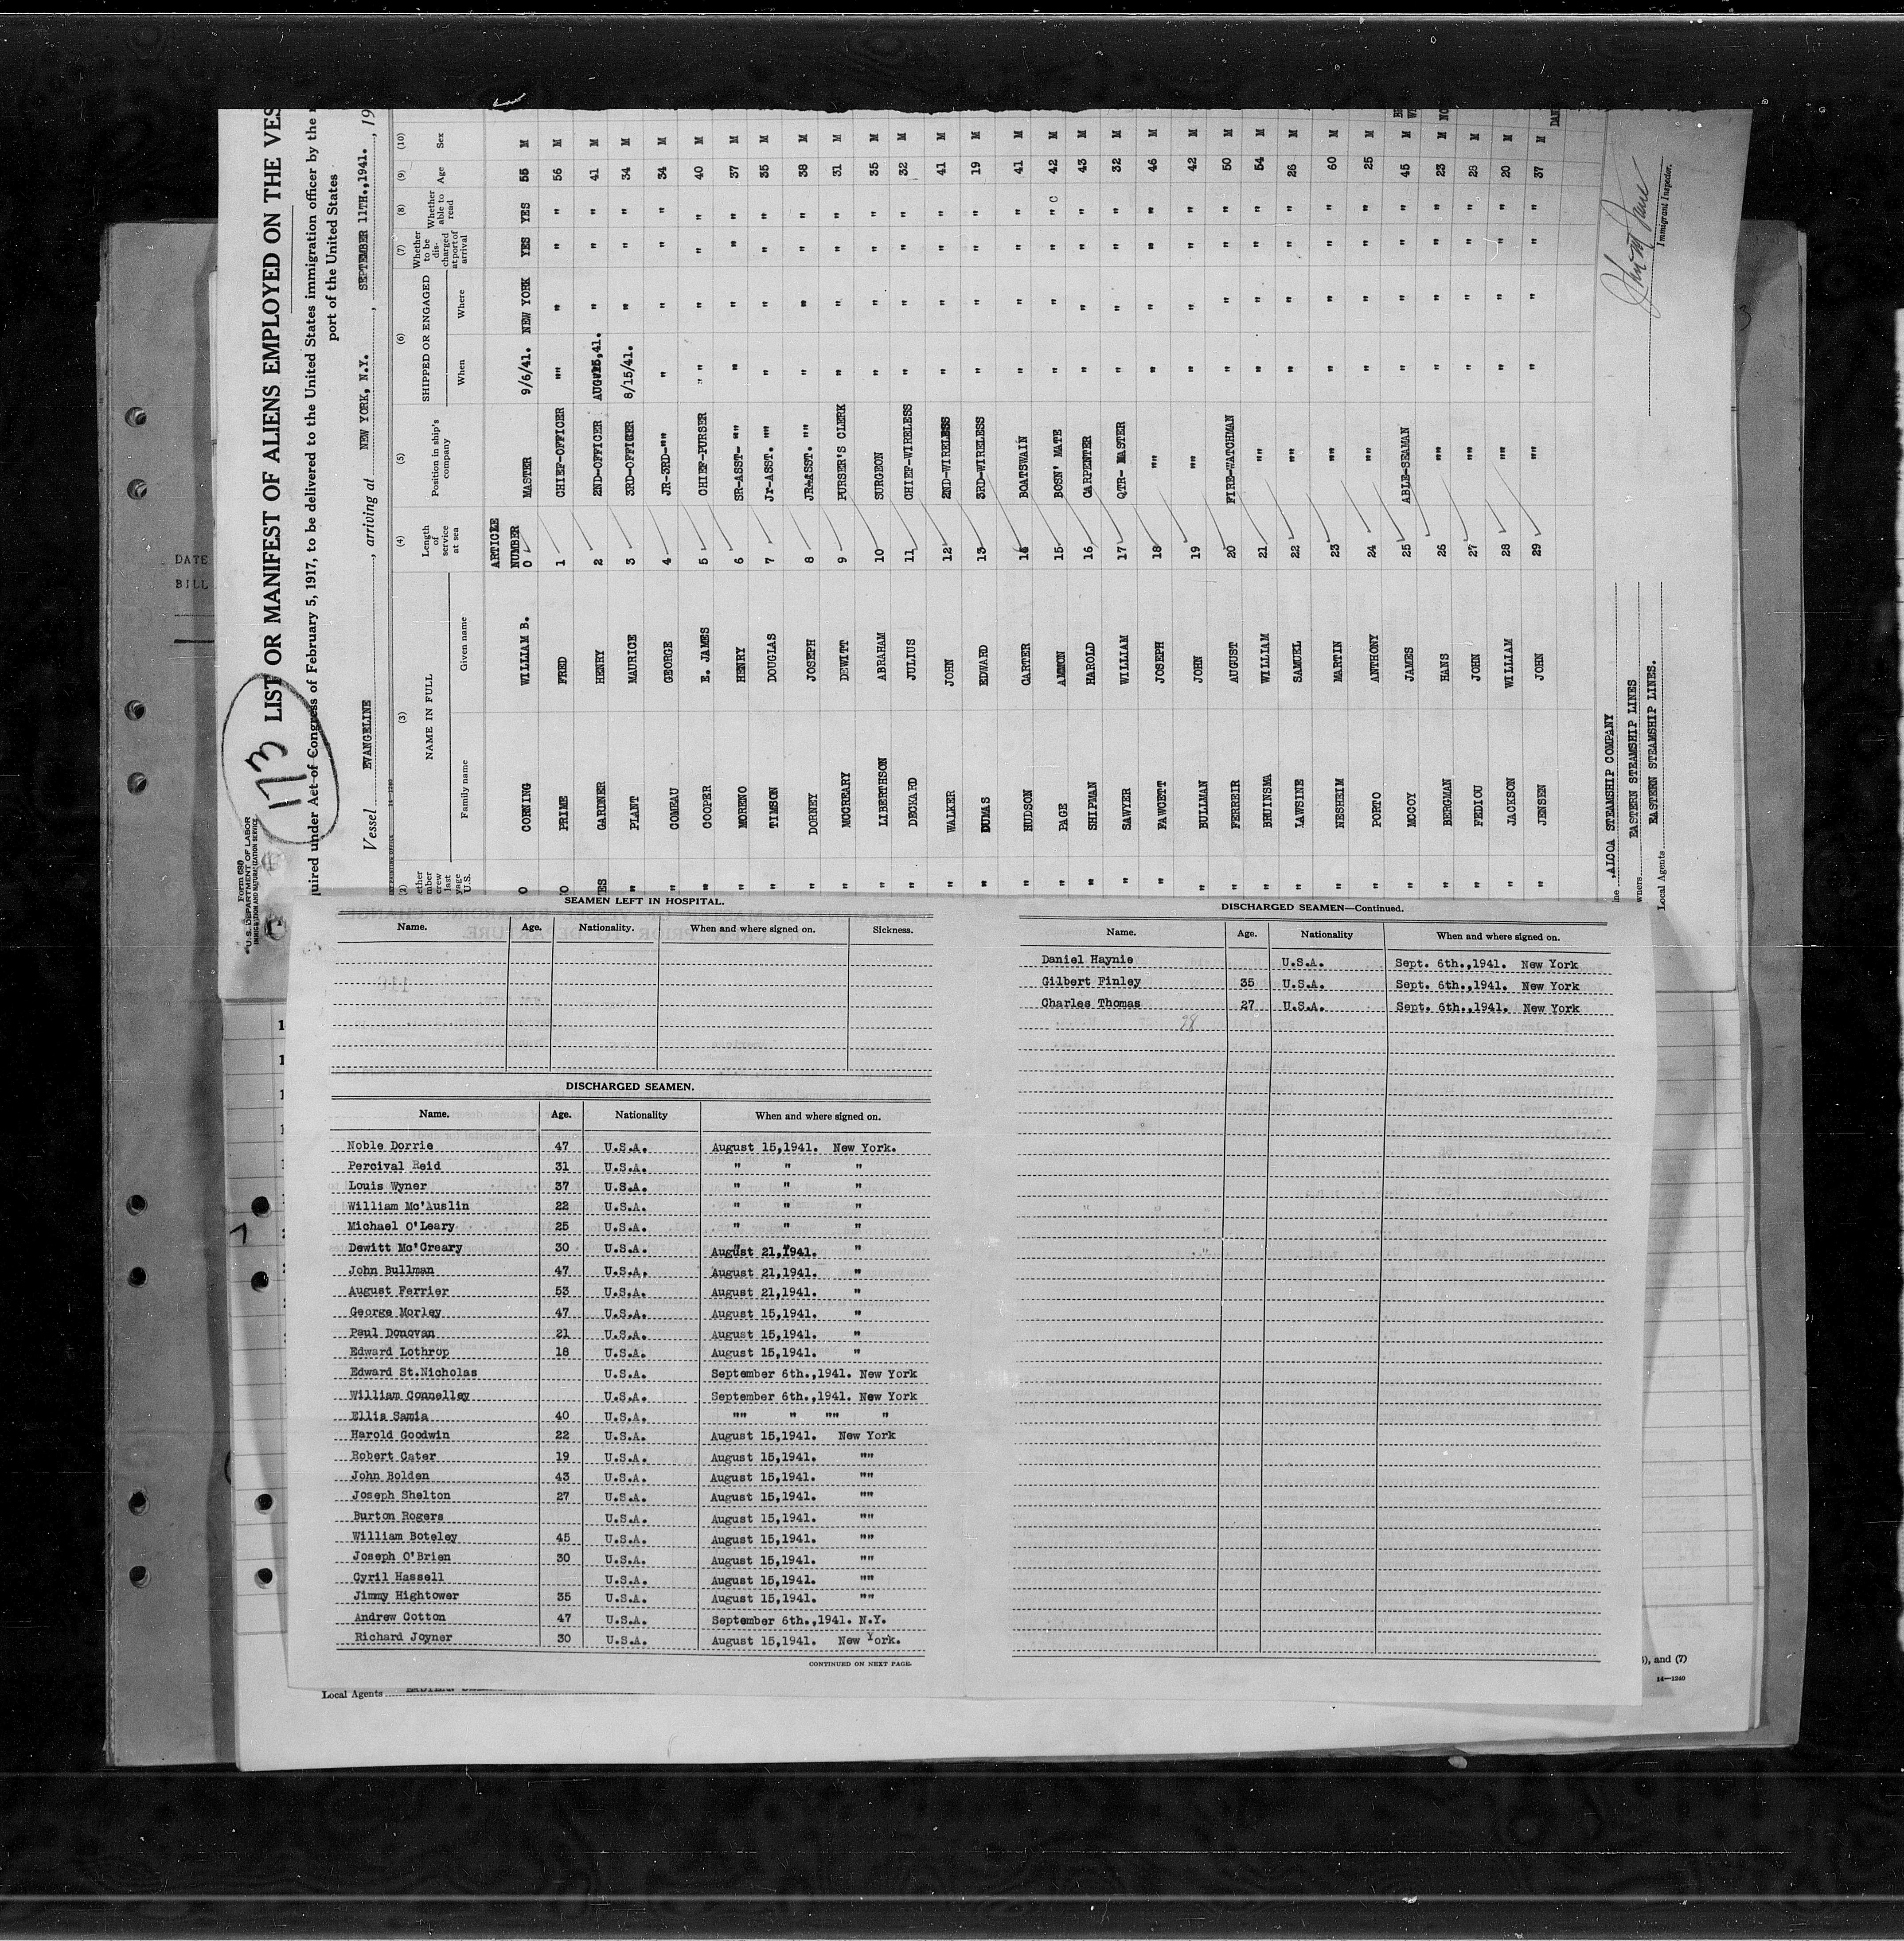 DATE
BILL
Form 680
U. S. DEPARTMENT OF LABOR
IMMIGRATION AND NATURALIZATION SERVICE
173
LIST OR MANIFEST OF ALIENS EMPLOYED ON THE VES
quired under Act of Congress of February 5, 1917, to be delivered to the United States immigration officer by the
port of the United States
Vessel EVANGELINE , arriving at NEW YORK, N.Y. , SEPTEMBER 11TH.,1941. , 19
(2) (3) (4) (5) (6) (7) (8) (9) (10)
NAME IN FULL
Family name Given name
Length of service at sea
Position in ship's company
SHIPPED OR ENGAGED
When Where
Whether to be discharged at port of arrival
Whether able to read
Age
Sex
ARTICLE
NUMBER
O CORNING WILLIAM B. 0 MASTER 9/6/41. NEW YORK YES YES 55 M
O PRIME FRED 1 CHIEF-OFFICER "" " " " 56 M
ES GARDNER HENRY 2 2ND-OFFICER AUG 15,41. " " " 41 M
" PLANT MAURICE 3 3RD-OFFICER 8/15/41. " " " 34 M
" COMEAU GEORGE 4 JR-3RD-"" " " " " 34 M
" COOPER E. JAMES 5 CHIEF-PURSER " " " " " 40 M
" MORENO HENRY 6 SR-ASST- "" " " " " 37 M
" TIMSON DOUGLAS 7 Jr-ASST. "" " " " " 35 M
" DORNEY JOSEPH 8 JR-ASST. "" " " " " 38 M
" MCCREARY DEWITT 9 PURSER'S CLERK " " " " 31 M
" LIBERTHSON ABRAHAM 10 SURGEON " " " " 35 M
" DECKARD JULIUS 11 CHIEF-WIRELESS " " " " 32 M
" WALKER JOHN 12 2ND-WIRELESS " " " " 41 M
" DUMAS EDWARD 13 3RD-WIRELESS " " " " 19 M
" HUDSON CARTER 14 BOATSWAIN " " " " 41 M
" PAGE AMMON 15 BOSN' MATE " " " " C 42 M
" SHIPMAN HAROLD 16 CARPENTER " " " " 43 M
" SAWYER WILLIAM 17 QTR- MASTER " " " " 32 M
" FAWCETT JOSEPH 18 "" " " " " 46 M
" BULLMAN JOHN 19 "" " " " " 42 M
" FERREIR AUGUST 20 FIRE-WATCHMAN " " " " 50 M
" BRUINSMA WILLIAM 21 "" " " " " 54 M
" LAWSINE SAMUEL 22 "" " " " " 26 M
" NESHEIM MARTIN 23 "" " " " " 60 M
" PORTO ANTHONY 24 "" " " " " 25 M
" MCCOY JAMES 25 ABLE-SEAMAN " " " " 45 M
" BERGMAN HANS 26 "" " " " " 23 M NO
" FEDIOU JOHN 27 "" " " " " 23 M
" JACKSON WILLIAM 28 "" " " " " 20 M
" JENSEN JOHN 29 "" " " " " 37 M DAN
ALCOA STEAMSHIP COMPANY
EASTERN STEAMSHIP LINES
Local Agents EASTERN STEAMSHIP LINES.
Immigrant Inspector.
SEAMEN LEFT IN HOSPITAL.
Name. Age. Nationality. When and where signed on. Sickness.
DISCHARGED SEAMEN.
Name. Age. Nationality When and where signed on.
Noble Dorrie 47 U.S.A. August 15,1941. New York.
Percival Reid 31 U.S.A. " " "
Louis Wyner 37 U.S.A. " " "
William Mc'Auslin 22 U.S.A. " " "
Michael O'Leary 25 U.S.A. " " "
Dewitt Mc'Creary 30 U.S.A. August 21,1941. "
John Bullman 47 U.S.A. August 21,1941. "
August Ferrier 53 U.S.A. August 21,1941. "
George Morley 47 U.S.A. August 15,1941. "
Paul Donovan 21 U.S.A. August 15,1941. "
Edward Lothrop 18 U.S.A. August 15,1941. "
Edward St.Nicholas U.S.A. September 6th.,1941. New York
William Connelley U.S.A. September 6th.,1941. New York
Ellis Samia 40 U.S.A. "" " "" "
Harold Goodwin 22 U.S.A. August 15,1941. New York
Robert Cater 19 U.S.A. August 15,1941. ""
John Bolden 43 U.S.A. August 15,1941. ""
Joseph Shelton 27 U.S.A. August 15,1941. ""
Burton Rogers U.S.A. August 15,1941. ""
William Boteley 45 U.S.A. August 15,1941. ""
Joseph O'Brien 30 U.S.A. August 15,1941. ""
Cyril Hassell U.S.A. August 15,1941. ""
Jimmy Hightower 35 U.S.A. August 15,1941. ""
Andrew Cotton 47 U.S.A. September 6th.,1941. N.Y.
Richard Joyner 30 U.S.A. August 15,1941. New York.
CONTINUED ON NEXT PAGE.
DISCHARGED SEAMEN—Continued.
Name. Age. Nationality When and where signed on.
Daniel Haynie U.S.A. Sept. 6th.,1941. New York
Gilbert Finley 35 U.S.A. Sept. 6th.,1941. New York
Charles Thomas 27 U.S.A. Sept. 6th.,1941. New York
28
Local Agents
), and (7)
14—1240